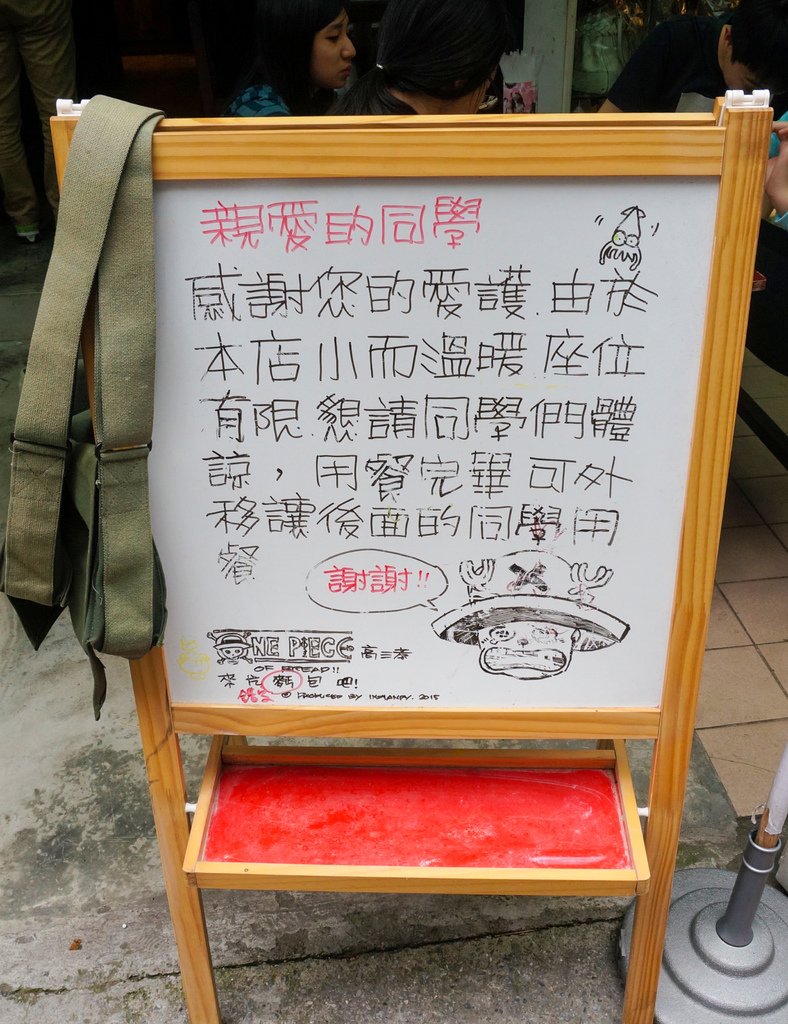 親愛的同學
感謝您的愛護.由於
本店小而溫暖.座位
有限.懇請同學們體
諒，用餐完畢可外
移讓後面的同學用
餐
謝謝!!
ONE PIECE 高三孝
OF BREAD!!
來片麵包吧!
© PRODUCED BY 2015